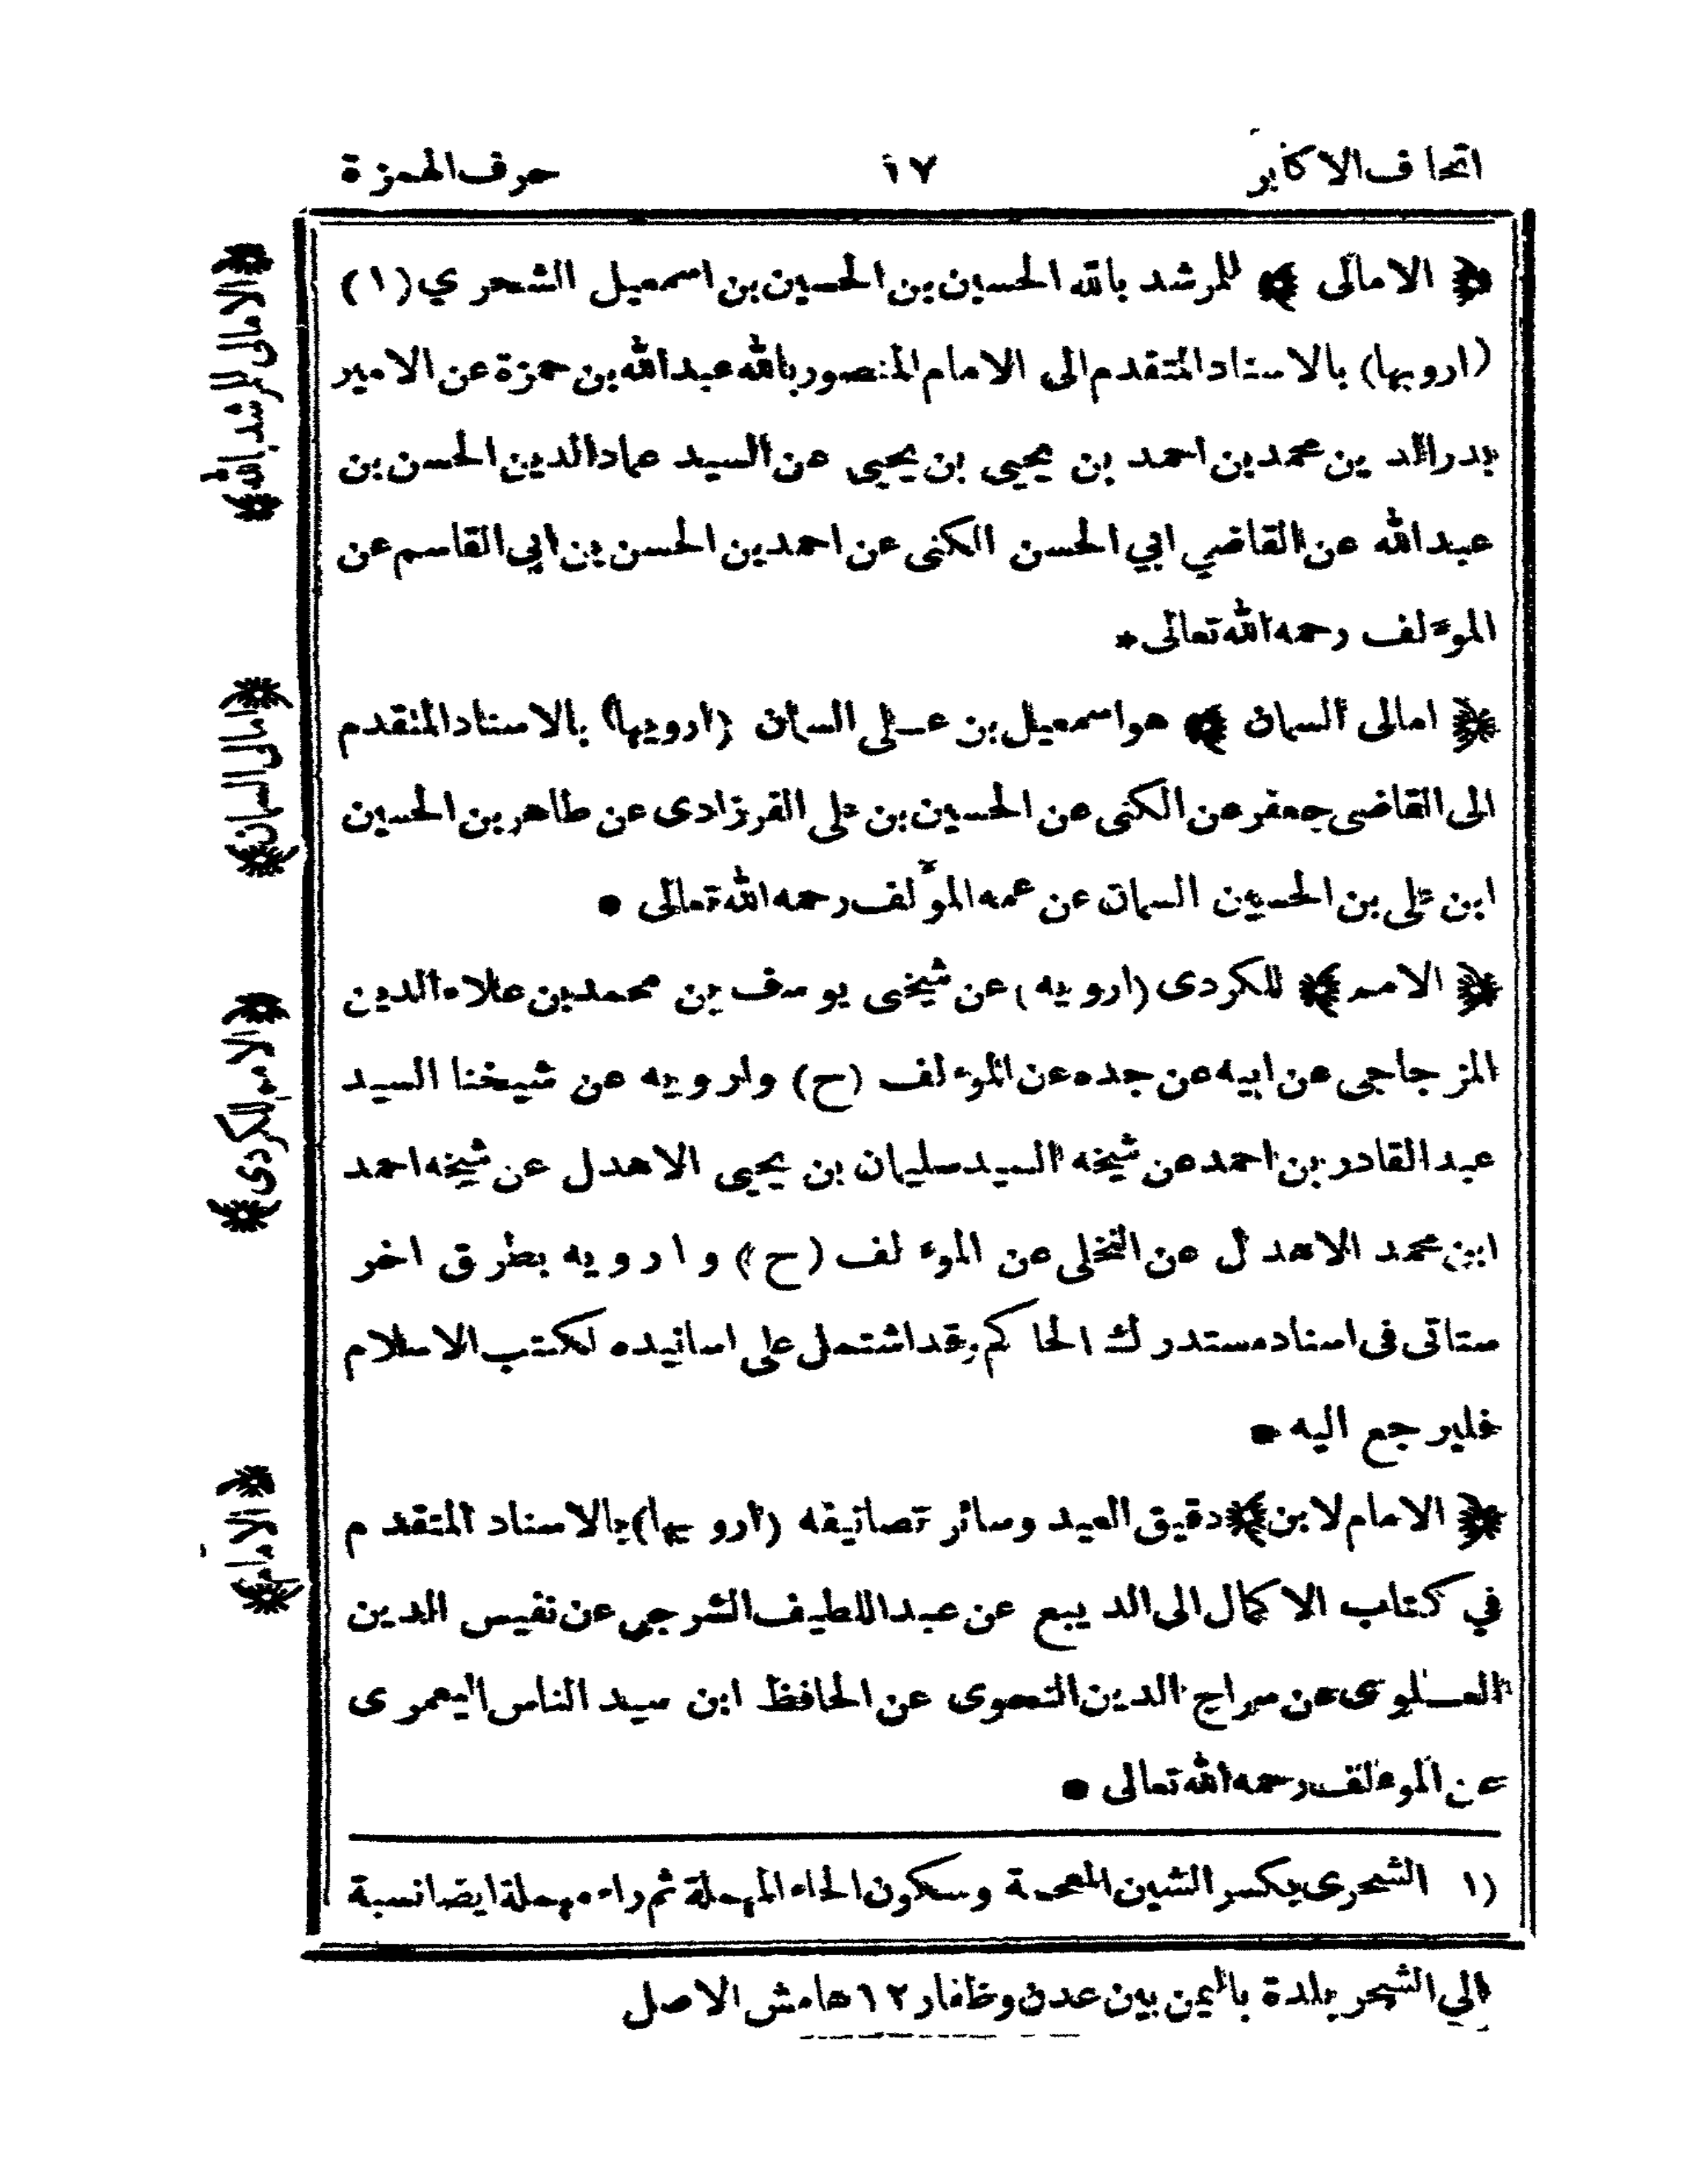 اتحاف الاكابر
١٧
حرف الهمزة
﴿ الامالى ﴾ للمرشد بالله الحسين بن الحسين بن اسمعيل الشجري (١)
(ارويها) بالاسناد المتقدم الى الامام المنصور بالله عبد الله بن حمزة عن الامير
بدر الدين محمد بن احمد بن يحيى بن يحيى عن السيد عماد الدين الحسن بن
عبد الله عن القاضي ابي الحسن الكنى عن احمد بن الحسن بن ابي القاسم عن
المؤلف رحمه الله تعالى *
﴿ امالى السمان ﴾ هو اسمعيل بن على السمان (ارويها) بالاسناد المتقدم
الى القاضى جعفر عن الكنى عن الحسين بن على الفرزادى عن طاهر بن الحسين
ابن على بن الحسين السمان عن عمه المؤلف رحمه الله تعالى *
﴿ الامم ﴾ للكردى (ارويه) عن شيخى يوسف بن محمد بن علاء الدين
المزجاجى عن ابيه عن جده عن المؤلف (ح) وارويه عن شيخنا السيد
عبد القادر بن احمد عن شيخه السيد سليمان بن يحيى الاهدل عن شيخه احمد
ابن محمد الاهدل عن النخلى عن المؤلف (ح) وارويه بطرق اخر
ستاتى فى اسناد مستدرك الحاكم وقد اشتمل على اسانيده لكتب الاسلام
فليرجع اليه *
﴿ الامام لابن ﴾ دقيق العيد وسائر تصانيفه (ارويها) بالاسناد المتقدم
في كتاب الاكمال الى الديبع عن عبد اللطيف الشرجى عن نفيس الدين
العلوى عن سراج الدين النحوى عن الحافظ ابن سيد الناس اليعمرى
عن المؤلف رحمه الله تعالى *
(١ الشحرى بكسر الشين المعجمة وسكون الحاء المهملة ثم راء مهملة ايضا نسبة
الي الشحر بلدة باليمن بين عدن وظفار ١٢ هامش الاصل
﴿ الامالى للمرشد بالله ﴾
﴿ امالى السمان ﴾
﴿ الامم للكردى ﴾
﴿ الامام ﴾